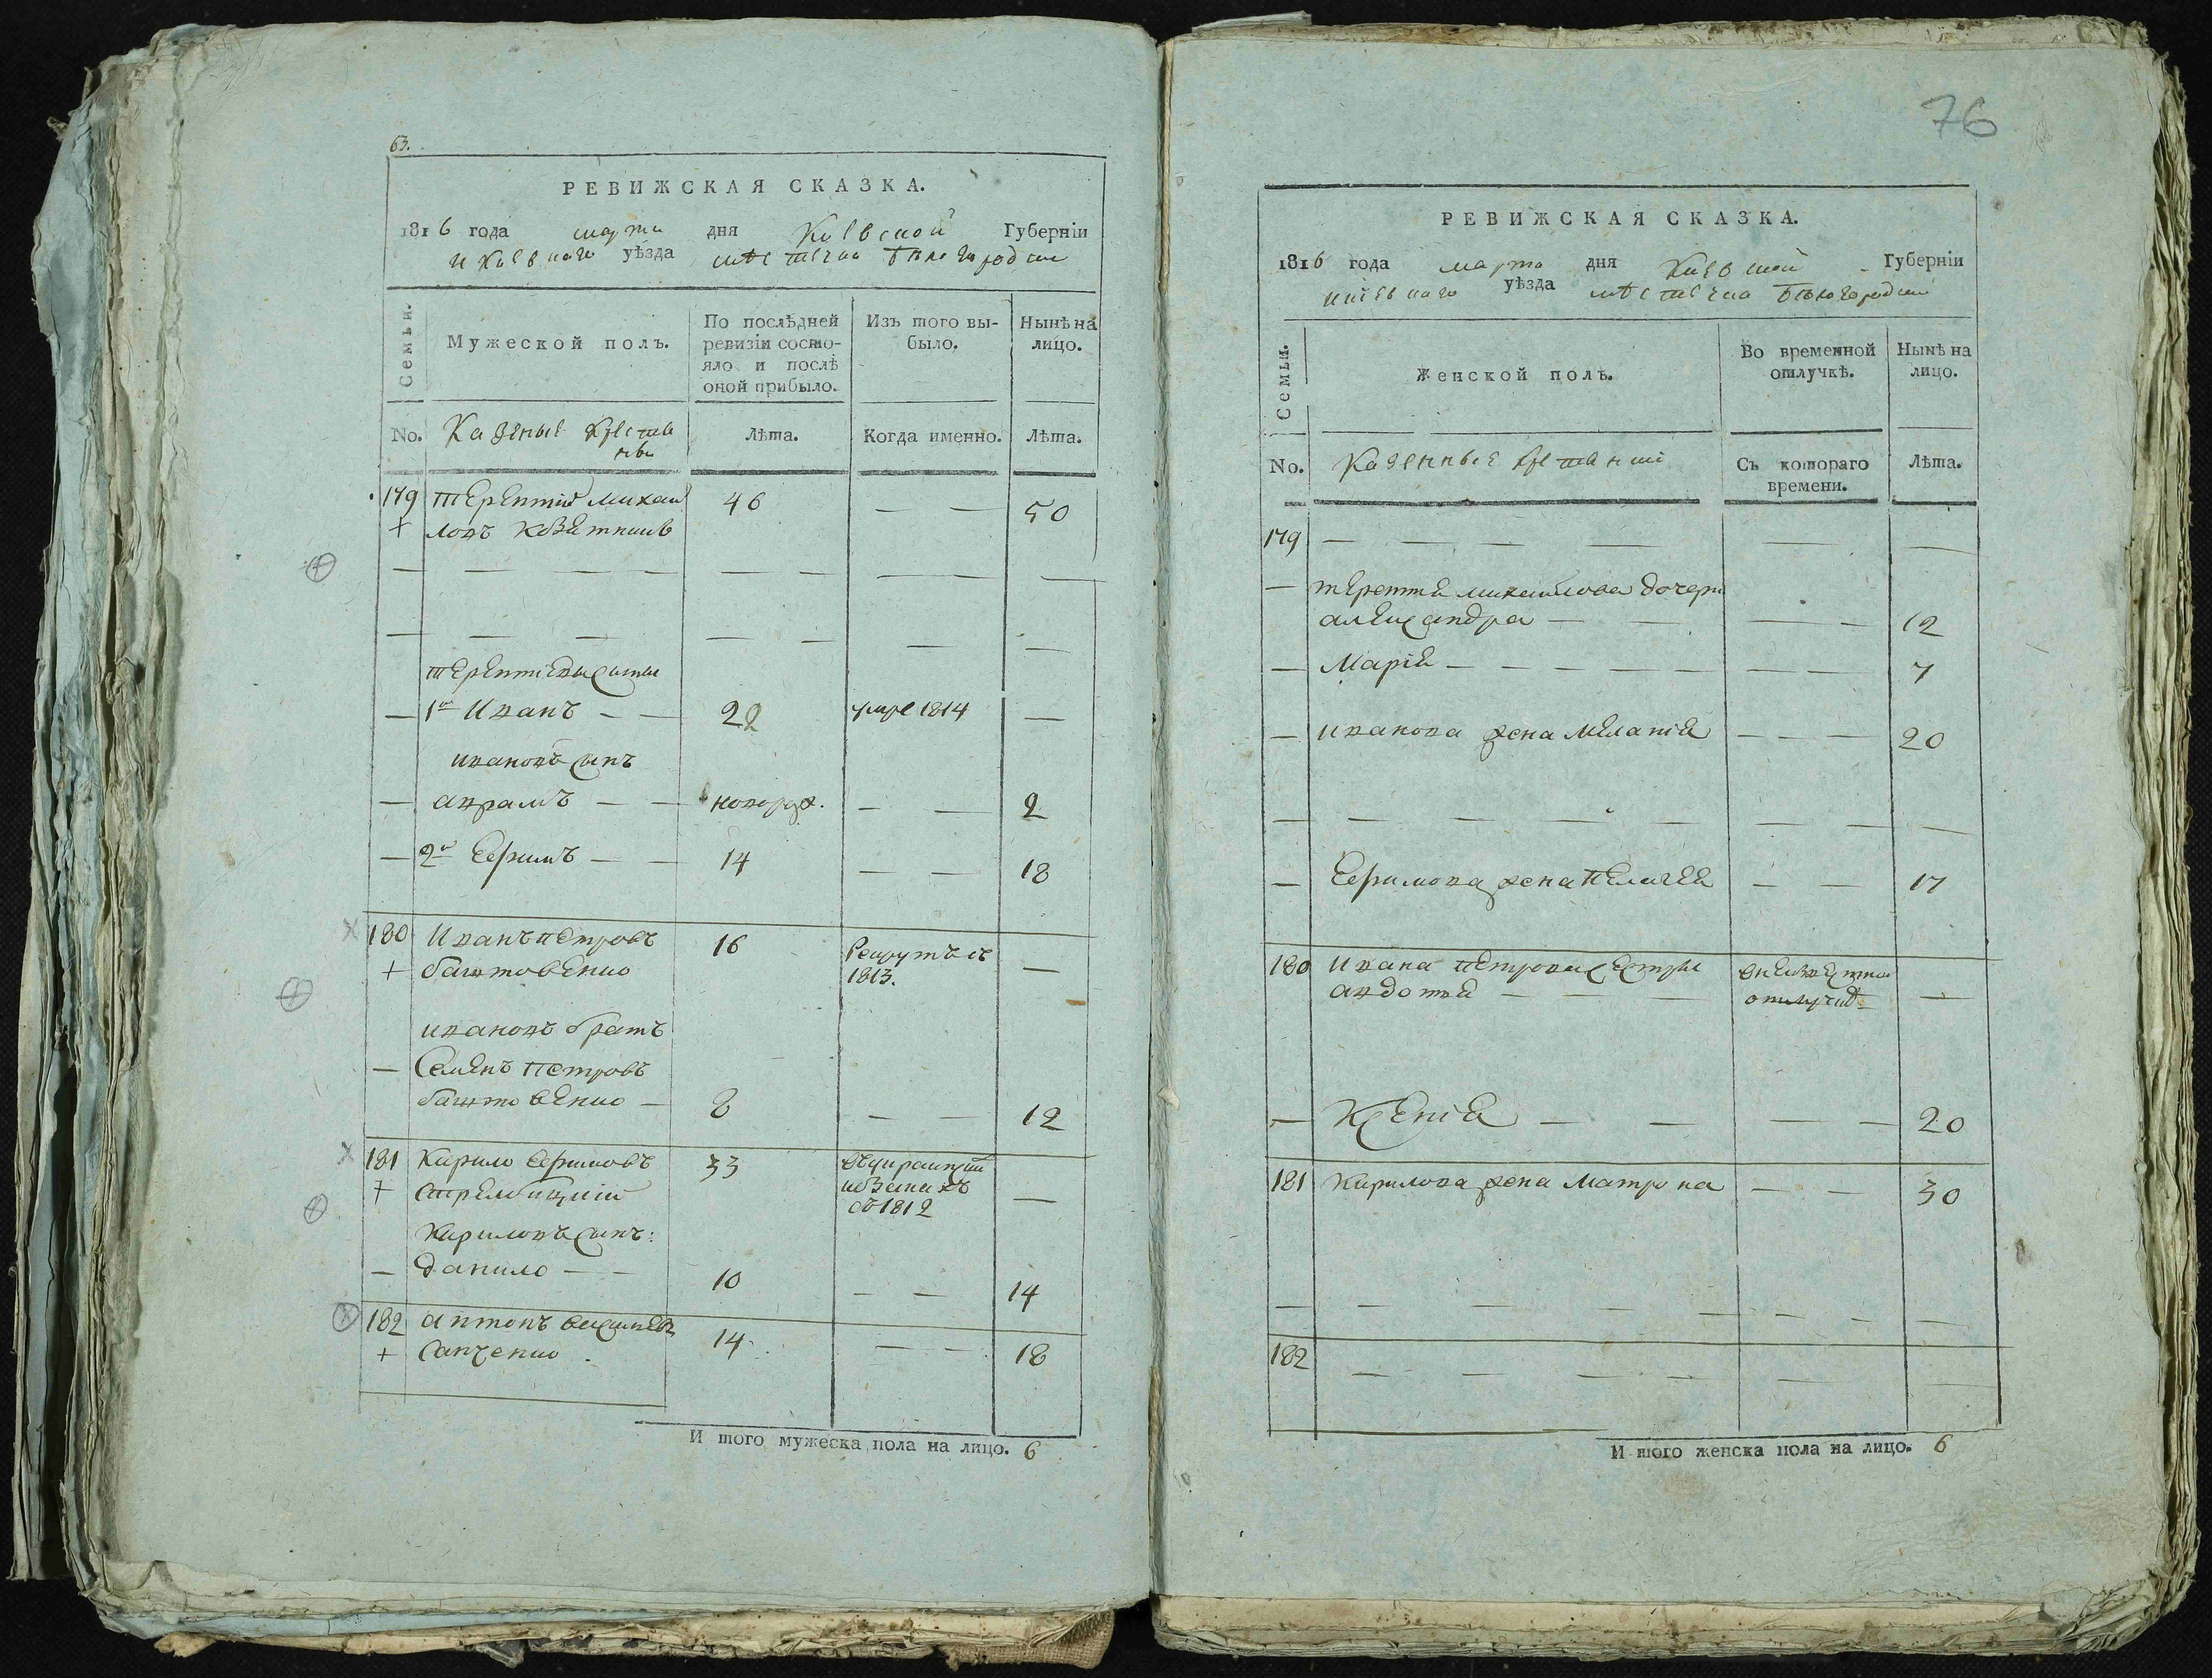 63.
РЕВИЖСКАЯ СКАЗКА.
1816 года марта дня Киевской Губерніи
и Киевнаго уѣзда мѣстечка Бѣлогородки
Семьи.
Мужеской полъ.
По послѣдней
ревизіи состо-
яло и послѣ
оной прибыло.
Изъ того вы-
было.
Нынѣ на
лицо.
No.
Казеные крестя
нѣ
Лѣта.
Когда именно.
Лѣта.
179 терентій михаи 46 — — 50
+ ловъ
— — — — — — — — — —
— — — — — — — —
терентіевы сыны
— 1й Иванъ — — 22 умре 1814 —
ивановъ сынъ
— аврамъ — — новорож. — — 2
— 2й Ефимъ — — 14 — — 18
180 Иванъ петровъ 16 Рекрутъ съ
+ баштовенко 1813. —
ивановъ братъ
— Семенъ петровъ
баштовенко — 8 — — 12
181 Кирило Ефимовъ 33
+ стрембицкій —
съ 1812
Кириловъ сынъ:
— данило — — 10 — — 14
182 антонъ василіевъ 14 — — 18
+ санченко
И того мужеска пола на лицо. 6
76
РЕВИЖСКАЯ СКАЗКА.
1816 года марта дня Киевской Губерніи
киевнаго уѣзда мѣстечка Бѣлогородки
Семьи.
Женской полъ.
Во временной
отлучкѣ.
Нынѣ на
лицо.
No.
Казенные крестянки
Съ котораго
времени.
Лѣта.
179 — — — — — —
— терентія михаилова дочери
александра — — — — 12
— Марія — — — — — — — 7
— иванова жена меланія — — — 20
— — — — — — — — —
— Ефимова жена пелагея — — 17
180 Ивана петрова сестры
авдотя — — — —
— Ксенія — — — — 20
181 Кирилова жена матрона — — 30
— — — — — — — —
182 — — — — — —
И того женска пола на лицо. 6